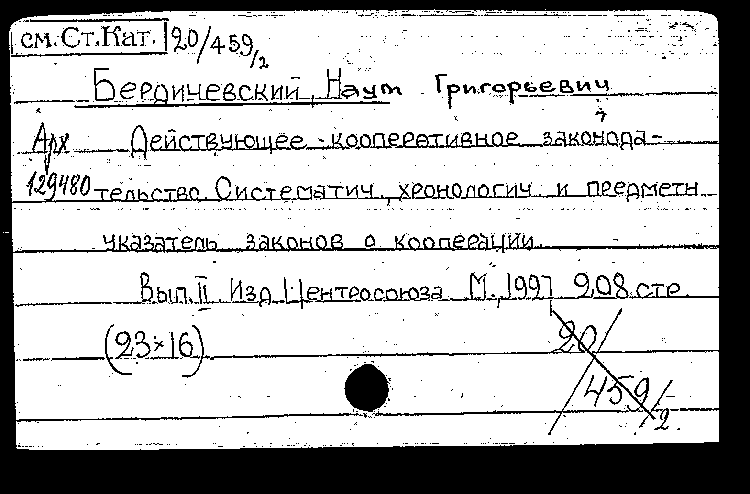 см. Ст. Кат. 20/459/2
Бердичевский, Наум Григорьевич
Арх Действующее кооперативное законода-
129480 тельство. Систематич., хронологич. и предметн.
указатель законов о кооперации
Вып. II Изд. Центросоюза М., 1927 208 стр.
(23×16)
20/
459/2.